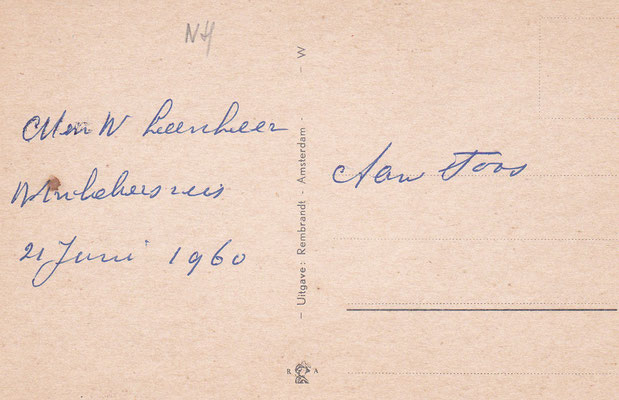 NH
W Leenheer
21 Juni 1960
— Uitgave: Rembrandt - Amsterdam - — W
Aan Toos
R A